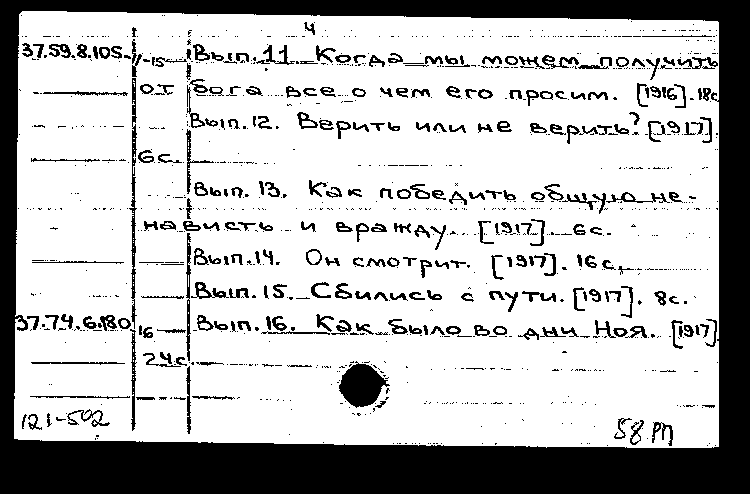 4
37.59.8.105. 11-15 Вып. 11 Когда мы можем получить
от бога все о чем его просим. [1916]. 18с
Вып. 12. Верить или не верить? [1917].
6с.
Вып. 13. Как победить общую не-
нависть и вражду. [1917]. 6с.
Вып. 14. Он смотрит. [1917]. 16с.
Вып. 15. Сбились с пути. [1917]. 8с.
37.74.6.180 16 Вып. 16. Как было во дни Ноя. [1917]
24с.
121-502
58 РП